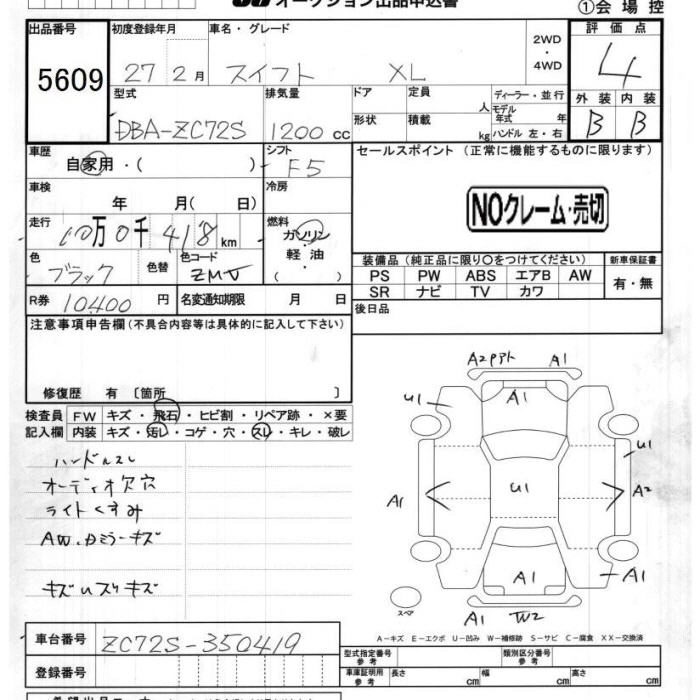 オークション出品申込書
①会場控
出品番号 初度登録年月 車名・グレード 評価点
5609 27 2月 スイフト XL 2WD・4WD 4
型式 排気量 ドア 定員 人 ディーラー・並行 外装 内装
DBA-ZC72S 1200cc 形状 積載 kg モデル年式 年 ハンドル 左・右 B B
車歴 シフト セールスポイント (正常に機能するものに限ります)
自家用・( ) F5
車検 冷房
年 月( 日)
NOクレーム・売切
走行 燃料
10万0千418km ガソリン
軽油
( )
色 色替 色コード
ブラック ZMV
装備品(純正品に限り〇をつけてください) 新車保証書
PS PW ABS エアB AW 有・無
SR ナビ TV カワ
R券 10400円 名変通知期限 月 日
後日品
注意事項申告欄(不具合内容等は具体的に記入して下さい)
修復歴 有 〔箇所 〕
検査員 FW キズ・飛石・ヒビ割・リペア跡・×要
記入欄 内装 キズ・汚レ・コゲ・穴・スレ・キレ・破レ
ハンドルスレ
オーディオ欠穴
ライトくすみ
AW.ドミラーキズ
キズUスリキズ
A2Pアト A1
U1 A1
U1
A1 U1 A2
A1 A1
スペア A1 W2
A-キズ E-エクボ U-凹み W-補修跡 S-サビ C-腐食 XX-交換済
車台番号 ZC72S-350419
登録番号
型式指定番号 参考 類別区分番号 参考
車庫証明用 参考 長さ cm 幅 cm 高さ cm